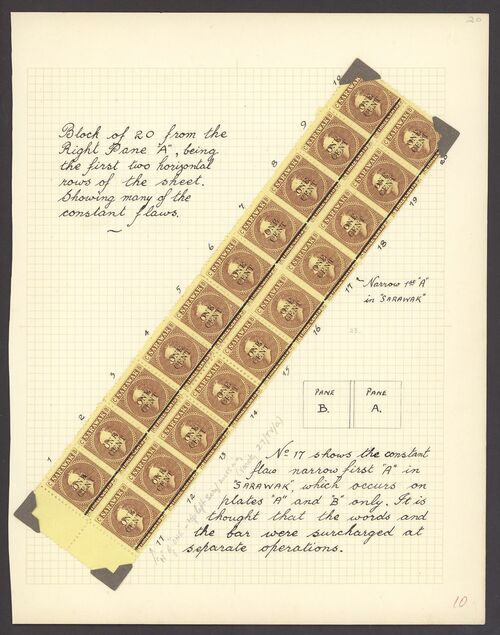 20
Block of 20 from the
Right Pane "A", being
the first two horizontal
rows of the sheet.
Showing many of the
constant flaws.
1
2
3
4
5
6
7
8
9
10
11
12
13
14
15
16
17
18
19
20
SARAWAK
ONE
CENT
Narrow 1st "A"
in "SARAWAK"
23.
PANE
B.
PANE
A.
No 17 shows the constant
flaw narrow first "A" in
"SARAWAK", which occurs on
plates "A" and "B" only. It is
thought that the words and
the bar were surcharged at
separate operations.
10